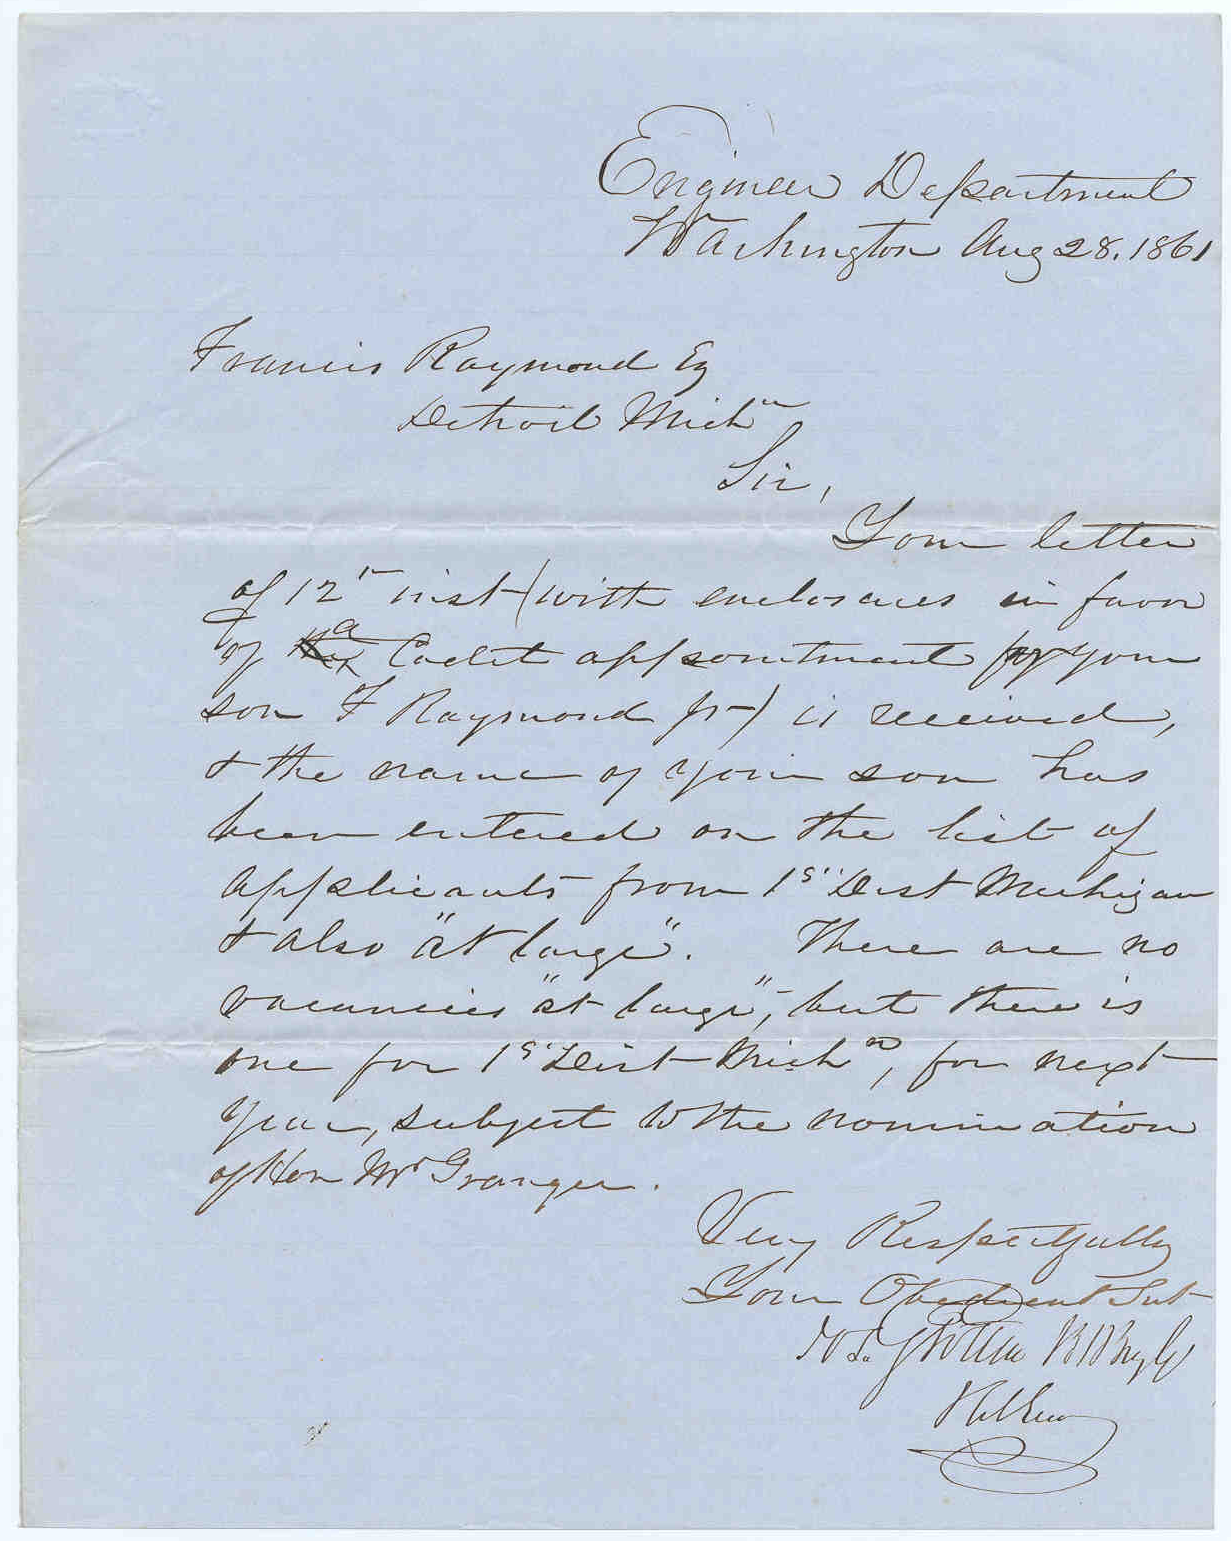 Engineer Department
Washington Aug 28. 1861
Francis Raymond Esq
Detroit Mich<sup>n</sup>
Sir,
Your letter
of 12<sup>th</sup> inst (with enclosures in favor
of a Cadet appointment for your
son F Raymond Jr) is received,
& the name of your son has
been entered on the list of
applicants from 1<sup>st</sup> Dist Michigan
& also "at large". There are no
vacancies "at large", but there is
one for 1<sup>st</sup> Dist Mich<sup>n</sup>, for next
year, subject to the nomination
of Hon Mr Granger.
Very Respectfully
Your Obedient Svt
Jos. G Totten Bt Brig Gl